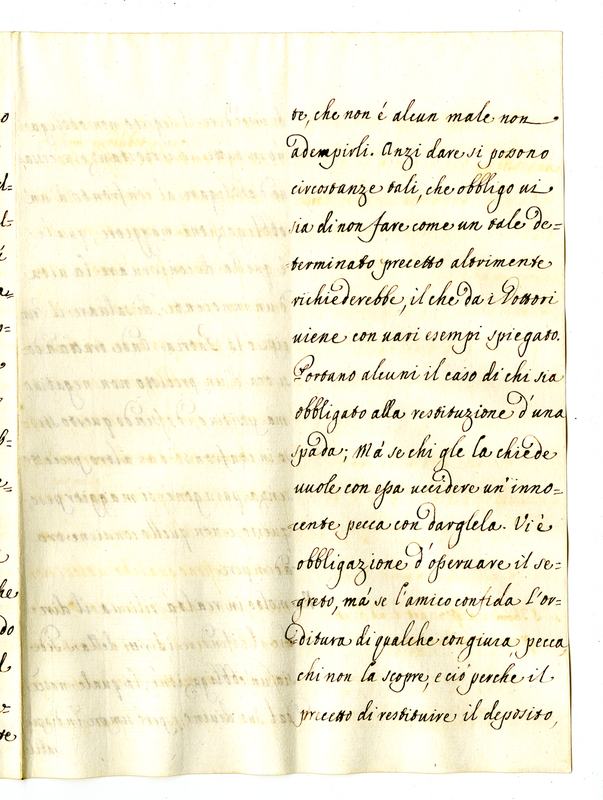 te, che non é alcun male non
adempirli. Anzi dare si possono
circostanze tali, che obbligo vi
sia di non fare come un tale de=
terminato precetto altrimente
richiederebbe, il che da i Dottori
viene con vari esempi spiegato.
Portano alcuni il caso di chi sia
obbligato alla restituzione d'una
spada; Má se chi gle la chiede
vuole con essa uccidere un'inno=
cente pecca con darglela. Vi é
obbligazione d'osservare il se=
greto, má se l'amico confida l'or=
ditura di qualche congiura, pecca
chi non la scopre, e ció perche il
precetto di restituire il deposito,